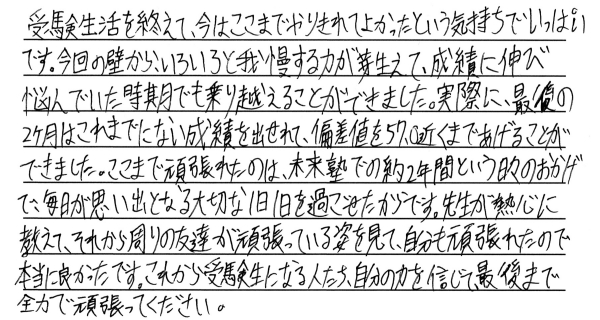 受験生活を終えて、今はここまでやりきれてよかったという気持ちでいっぱい
です。今回の壁からいろいろと我慢する力が芽生えて、成績に伸び
悩んでいた時期でも乗り越えることができました。実際に、最後の
2ヶ月はこれまでにない成績を出せれて、偏差値を57近くまであげることが
できました。ここまで頑張れたのは、未来塾での約2年間という日々のおかげ
で、毎日が思い出となる大切な1日1日を過ごせたからです。先生が熱心に
教えて、それから周りの友達が頑張っている姿を見て、自分も頑張れたので
本当に良かったです。これから受験生になる人たち、自分の力を信じて、最後まで
全力で頑張ってください。